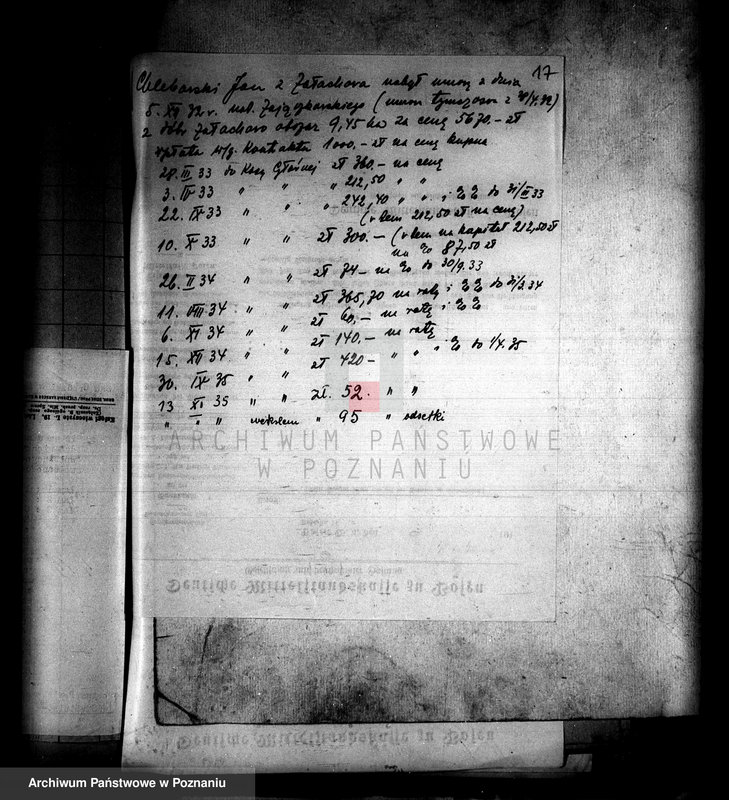 17
Chlebarski Jan z Załachowa nabył umową z dnia
5. XII 32 r. zł (umowa tymczasowa z 28/4.32)
z dóbr Załachowo obszar 9,45 ha za cenę 5670.- zł
wpłata w/g. kontraktu 1000,- zł na cenę kupna
28. III 33 do Kasy Głównej zł 360,- na cenę
3. IV 33 " " " 212,50 " "
22. IX 33 " " " 242,40 " " i % % do 31/III 33
(w tem 212,50 zł na cenę)
10. X 33 " " zł 300.- (w tem na kapitał 212,50 zł
na % 87,50 zł
26. II 34 " " zł 74- na % do 30/9.33
11. VIII 34 " " zł 365,70 na ratę i % % do 31/3.34
6. XI 34 " " zł 60,- na ratę i % %
15. XII 34 " " zł 140.- na ratę
30. IX 35 " " zł 420- " " i % do 1/4.35
13 XI 35 " " zł. 52. " "
" " " wekslem " 95 " odsetki
ARCHIWUM PAŃSTWOWE
W POZNANIU
Deutsche Mittelstandskasse zu Posen
Deutsche Mittelstandskasse zu Posen
Archiwum Państwowe w Poznaniu